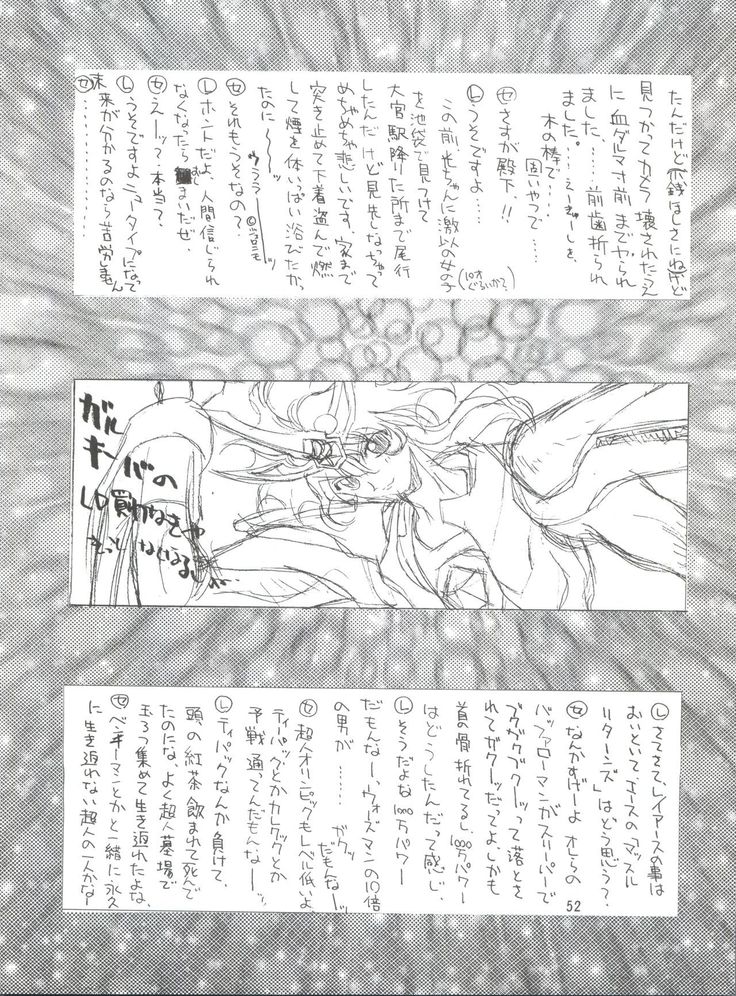 たんだけど小銭ほしさにねぇ。けど
見つかってカメラ壊されたうえ
に血ダルマ寸前までやられ
ました……前歯折られ
ました。……えーぎゅーしを、
木の棒で……
固いやつで……
セ さすが殿下、!!
L うそですよ……
この前、光ちゃんに激似の女の子
(10才ぐらいかで)
を池袋で見つけて
大宮駅降りた所まで尾行
したんだけど見失しなっちゃって
めちゃめちゃ悲しいです。家まで
突き止めて下着盗んで燃
して煙を体いっぱい浴びたか
たのに〜〜〜ッ
ウララーーーッ
セ それもうそなの?
L ホントだよ、人間信じられ
なくなったら おしまいだぜ、
セ えーッ?本当て?
L うそですよニュータイプになって
未来が分かるのなら苦労事ん
セ ……………
ガル
キーバの
LD買わなきゃ
L さてさて、レイアースの事は
おいといて、エースの「マッスル
リターンズ」はどう思う?
セ なんかすげーよ オレらの
バッファローマンがスリーパーで
ブクブクブクーッって落とさ
れてガクーッだってよ、しかも
首の骨折れてるし、1000万パワー
はどうしたんだって感じ、
L そうだよな1000万パワー
だもんなー、ウォーズマンの10倍
の男が……ガクッ
だもんなーッ
セ 超人オリンピックもレベル低いよ、
ティーパックとかカレクックとか
予戦通ってんだもんなーッ
L ティーパックなんか負けて、
頭の紅茶飲まれて死んで
たのにな、よく超人墓場で
玉4つ集めて生き返れたよな、
セ ベンキーマンとかと一緒に永久
に生き返れない超人の一人かなー
52